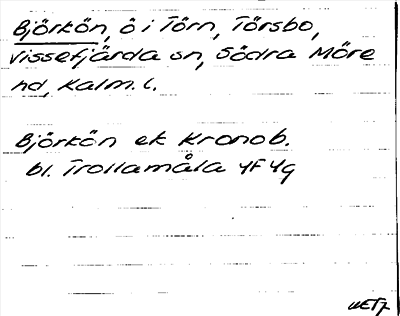 Björkön, ö i Törn, Törsbo,
Vissefjärda sn, Södra Möre
hd, Kalm. l.
Björkön ek Kronob.
bl. Trollamåla 4F4g